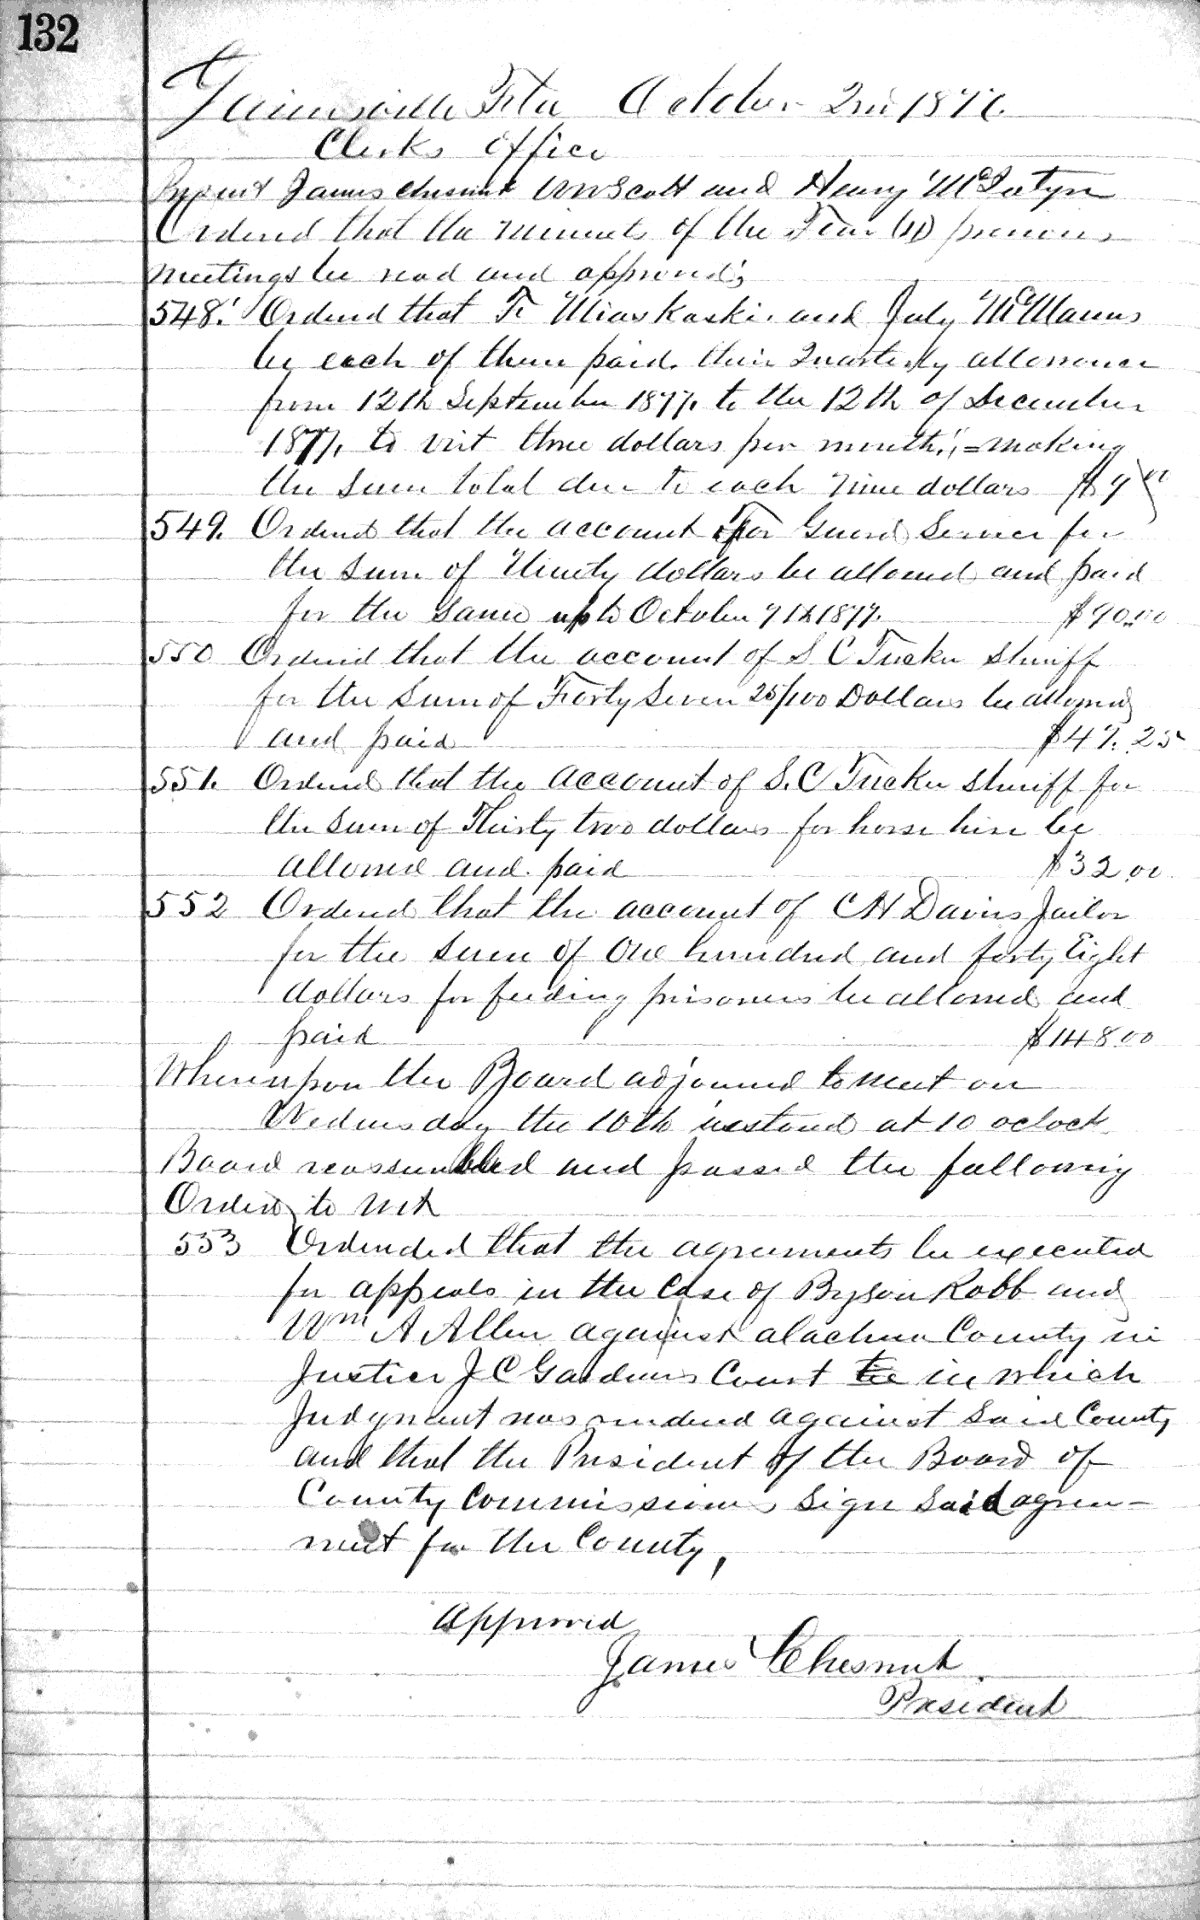 132
Gainesville Fla October 2nd 187
Clerks Office
Present James Chesnut Wm Scott and Henry McIntyre
Ordered that the minuets of the Four (4) previous
meetings be read and approved;
548. Ordered that F. Miaskaski and July McManus
be each of them paid their Quarterly allowance
from 12th September 1877, to the 12th of December
1877, to wit three dollars per month, = making
the Sum total due to each Nine dollars $9 00
549. Ordered that the account For Guard Service for
the Sum of Ninety dollars be allowed and paid
for the same up to October 1877. $90.00
550 Ordered that the account of S C Tucker Sheriff
for the Sum of Forty Seven 25/100 Dollars be allowed
and paid $47.25
551. Ordered that the account of S. C Tucker Sheriff for
the Sum of Thirty two dollars for horse hire be
allowed and paid $32.00
552 Ordered that the account of C H Davis Jailor
for the Sum of One hundred and forty Eight
dollars for feeding prisoners be allowed and
paid $148.00
Whereupon the Board adjourned to meet on
Wednesday the 10th instand at 10 oclock
Board reassembled and passed the following
Orders to wit
553 Ordended that the agreements be executed
for appeals in the Case of Byson Robb and
Wm A Allen against alachua County in
Justice J C Gardners Court in which
Judgment was rendered against Said County
and that the President of the Board of
County Commissioners Sign Said agree-
ment for the County,
Approved
James Chesnut
President